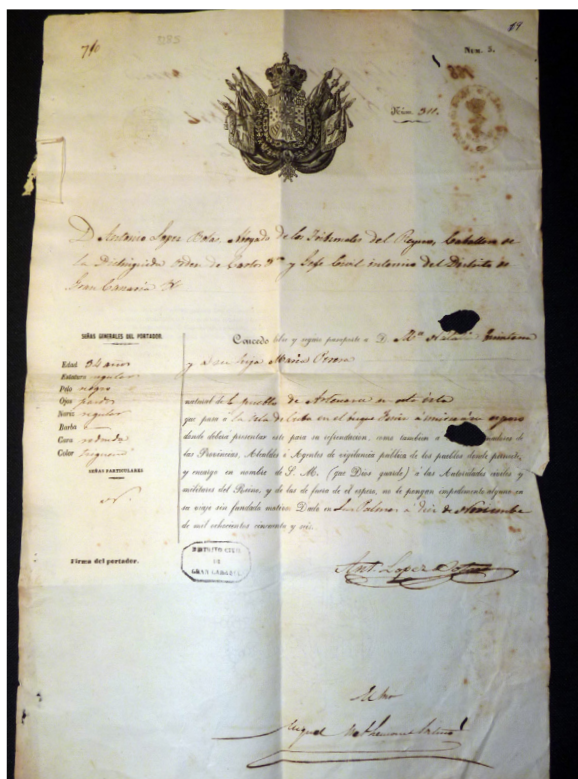 79
716
3185
Núm. 3.
Núm. 311.
D. Antonio Lopez Botas, Abogado de los Tribunales del Reyno, Caballero de
la Distinguida orden de Carlos 3º y Gefe Civil interino del Distrito de
Gran Canaria &
SEÑAS GENERALES DEL PORTADOR.
Edad 34 años
Estatura regular
Pelo negro
Ojos pardos
Nariz regular
Barba
Cara redonda
Color trigueño
SEÑAS PARTICULARES
Concedo libre y seguro pasaporte a D. Mª Natalia Quintana
y su hija Maria
natural de de Artenara en esta isla
que pasa á la Isla de Cuba en el buque
donde deberá presentar este para su refrendacion, como tambien a
las Provincias, Alcaldes ó Agentes de vigilancia publica de los pueblos donde pernocte,
y encargo en nombre de S. M. (que Dios guarde) á las Autoridades civiles y
militares del Reino, y de las de fuera de el espero, no le pongan impedimento alguno en
su viaje sin fundado motivo. Dado en Las Palmas a diez de Noviembre
de mil ochocientos cincuenta y
DISTRITO CIVIL
DE
GRAN CANARIA
Firma del portador.
Ant. Lopez Botas
Miguel